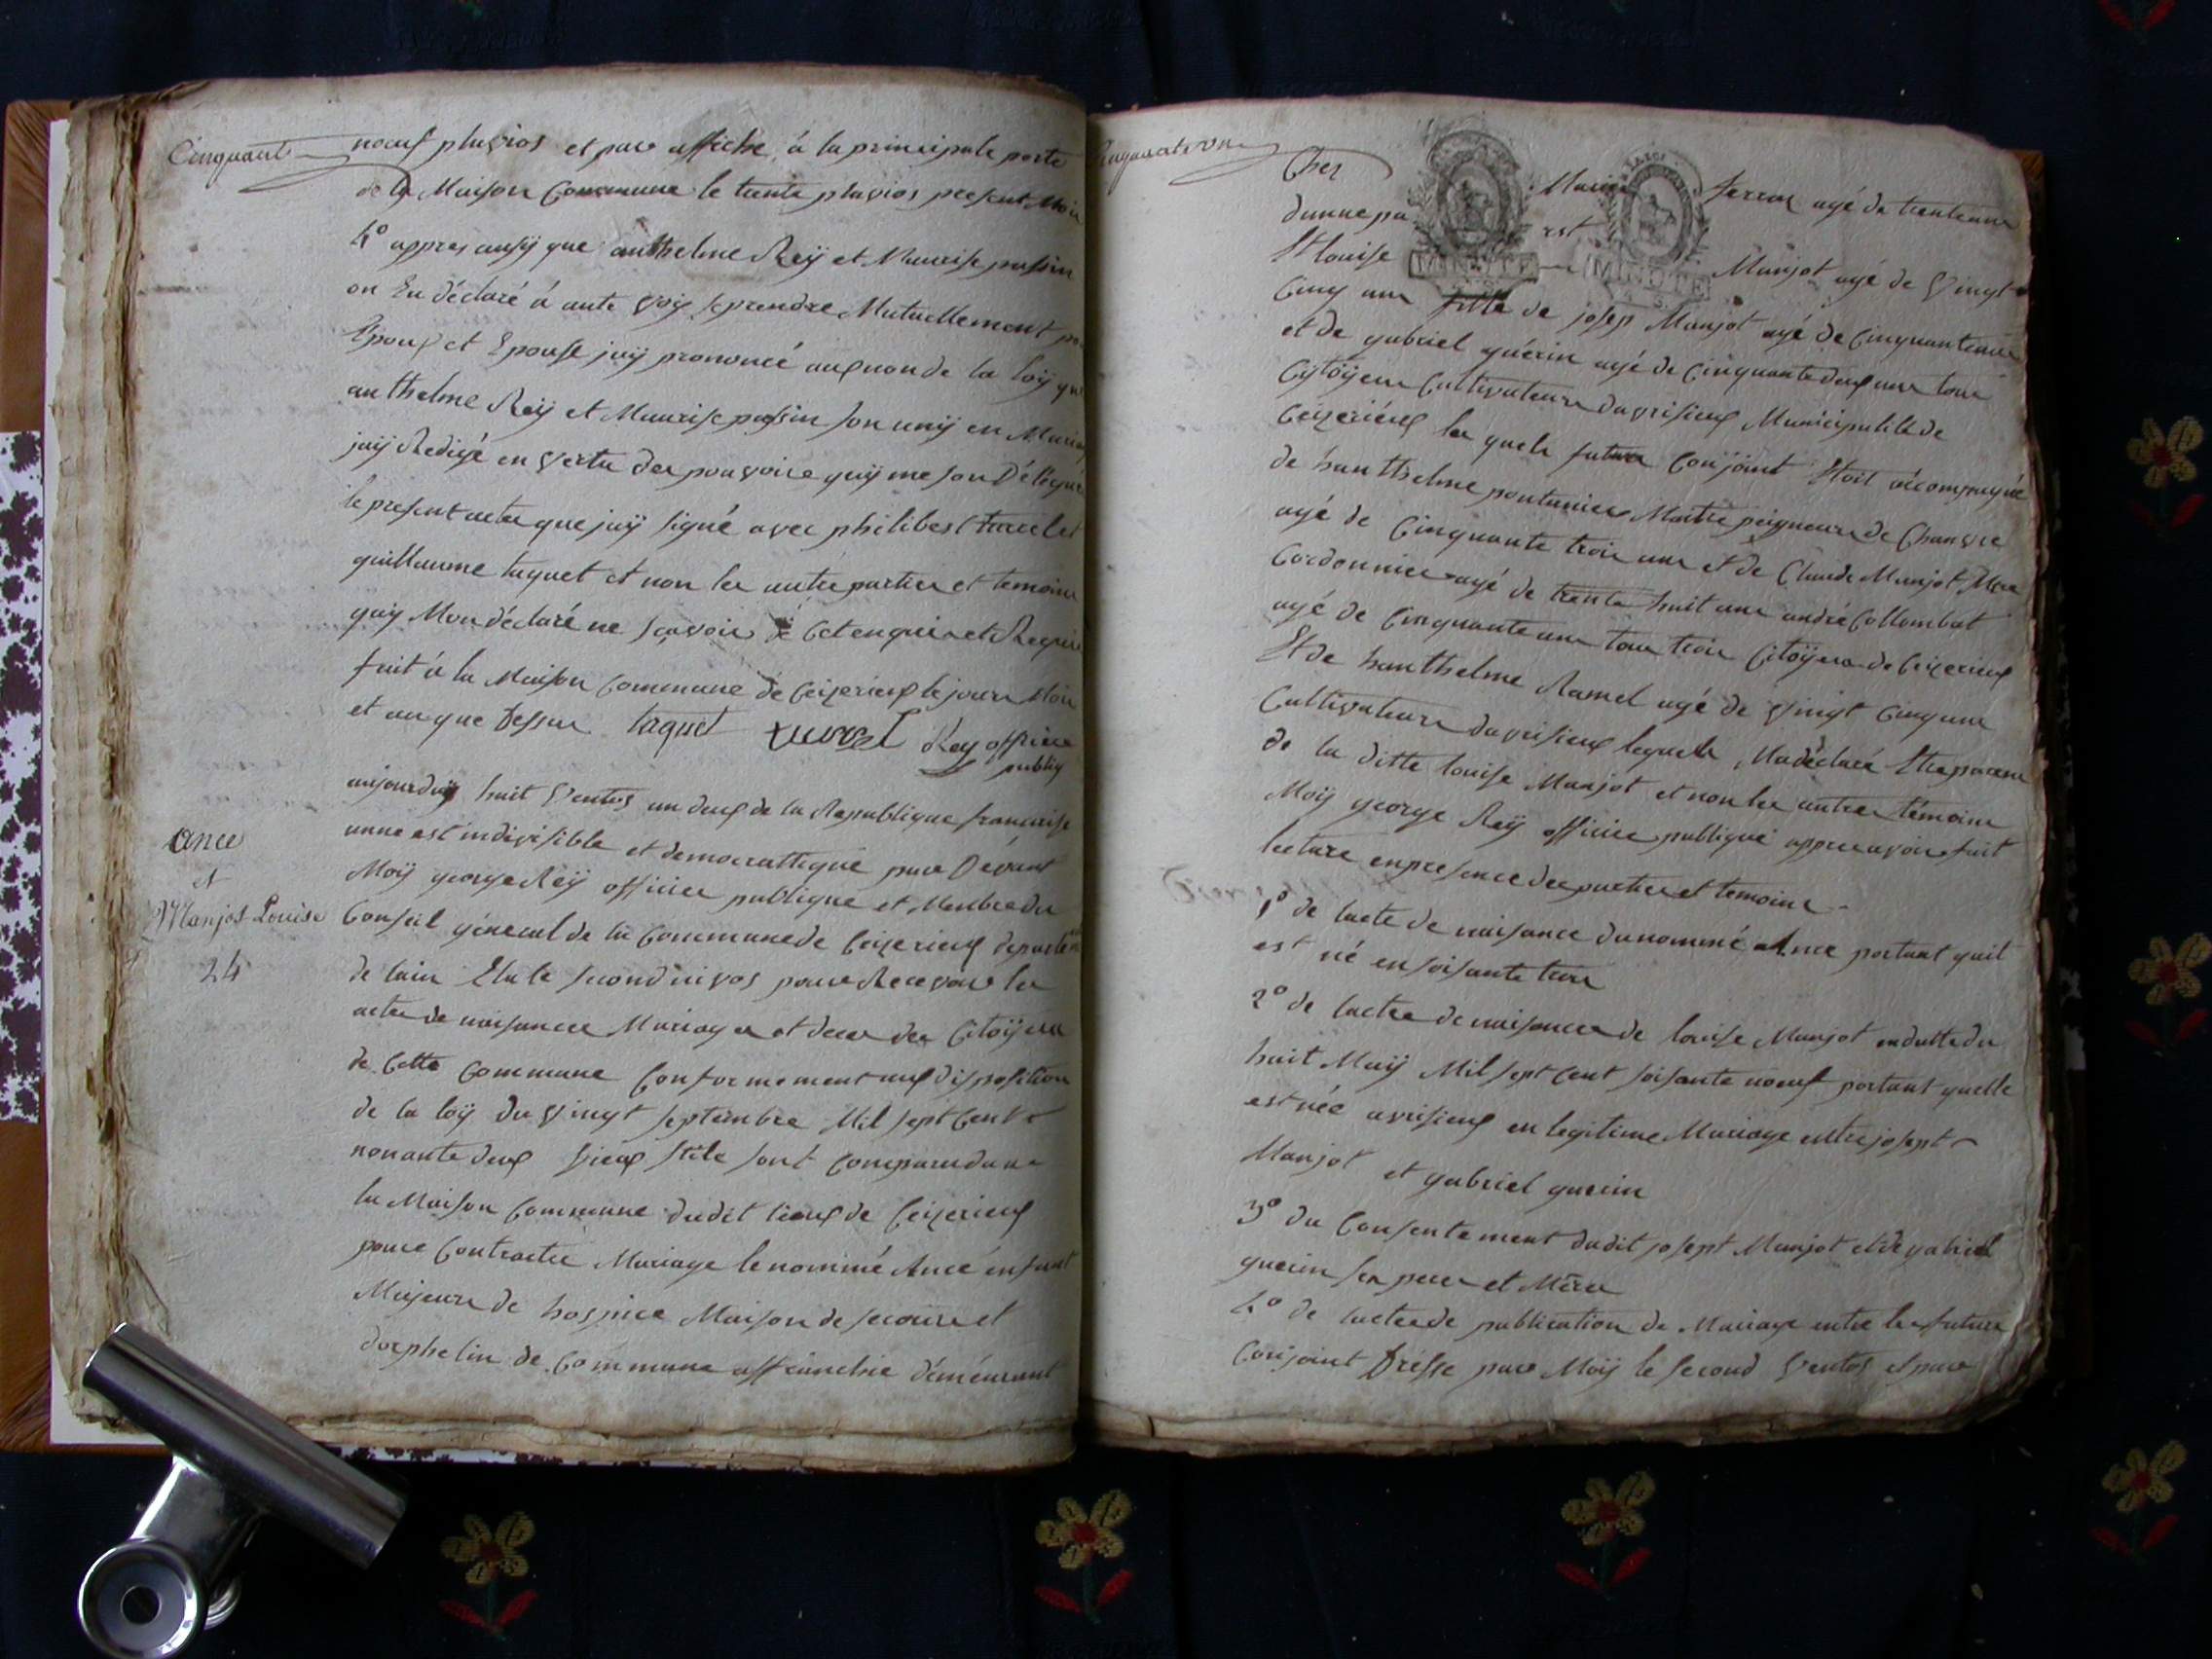 Cinquant
noeuf pluvios et pare affiche à la principale porte
de la Maison Commune le trente pluvios present Mois
4º appres ausÿ que anthelme Reÿ et Maurise passin
on Eu déclaré à aute voiy se prendre Mutuellement
Epoux et Epouse jaÿ prononcé aux non de la loiÿ que
anthelme Reÿ et Maurise passin son unÿ en
jaÿ Redigé en vertu des pouvoire quÿ me son Délégué
le present actes que jaÿ signé avec philibert
guillaume taquet et non les autre parties et temoins
quÿ Mon déclaré ne sçavoir de cet enquis et Requis
fait à la Maison Commune de Ceizerieux le jour Mois
et an que dessus taquet Rey officie
publiq
ance
et
Manjot Louise
24
aujourduÿ huit Ventos an deux de la Republique francaise
unne est indivisible et democrattique pare Dévant
Moÿ george Reÿ officier publique et Menbre du
Conseil géneral de la Commune de Ceizerieux departe
de lain Elu le second nivos pour Recevoir les
actes de naisances Mariages et deces des Citoÿens
de Cette Commune Conformement aux disposition
de la loÿ du vingt septembre Mil sept Cent
nonante deux vieux stile sont Comparu dans
la Maison Commune dudit lieux de Ceizerieux
pour Contracter Mariage le nommé Ance enfant
Majeure de hospice Maison de secours et
dorphelin de Commune affranchie démeurant
Cinquante une
Chez Marie ferraz agé de trente ans
dunne pa est
St louise Manjot agé de vingt
Cinq ans fille de josep Manjot agé de Cinquante ans
et de gabriel guérin agé de Cinquante deux ans tous
Citoÿens Cultivateurs davrisieux Municipalité de
Ceizerieux les quels futurs Conjoint Etoit accompagné
de hanthelme pontanier Maitre peigneure de Chanvre
agé de Cinquante trois ans et de Claude Manjot Mtre
Cordonnier agé de trente huit ans andré Collombat
agé de Cinquante ans tous trois Citoÿens de Ceizerieux
Et de hanthelme Ramel agé de vingt Cinq ans
Cultivateure davrisieux lequels Ma déclaré Etre parent
de la ditte louise Manjot et non les autres témoins
Moÿ george Reÿ officier publique appres avoir fait
lecture en presence des parties et temoins
1º de lacte de naisance du nommé Ance portant quil
est né en soisante trois
2º de lactes de naisances de louise Manjot en datte du
huit Maÿ Mil sept Cent soisante noeuf portant quelle
est née avrisieux en legitime Mariage entre josept
Manjot et gabriel guerin
3º du Consentement dudit josept Manjot et de gabriel
guerin ses pere et Mère
4º de lactes de publication de Mariage entre les futurs
Conjoint Dréssé pare Moÿ le second Ventos et pare
MINUTE
MINUTE
LA LOI